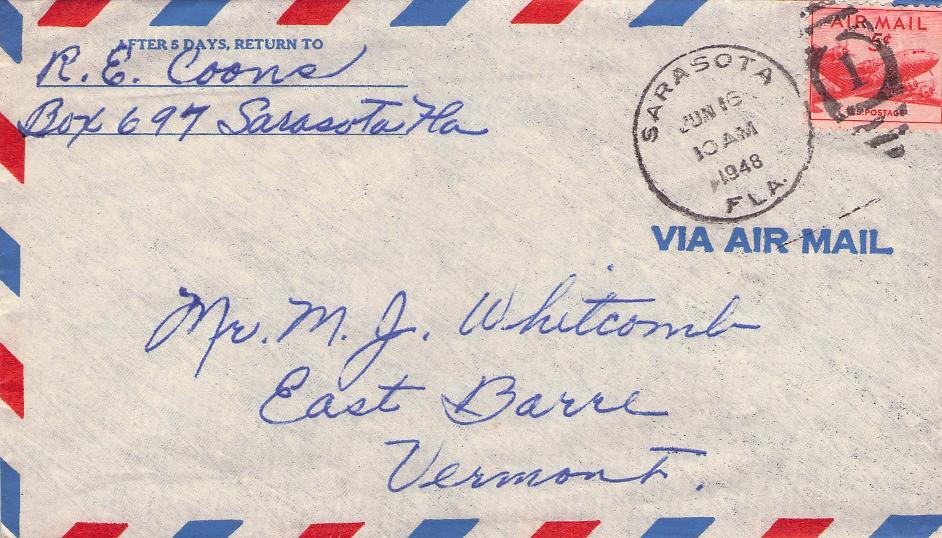 AFTER 5 DAYS, RETURN TO
R. E. Coons
Box 697 Sarasota Fla
SARASOTA
JUN 16
10 AM
1948
FLA.
AIR MAIL
5¢
U.S. POSTAGE
1
VIA AIR MAIL
Mr. M. J. Whitcomb
East Barre
Vermont.